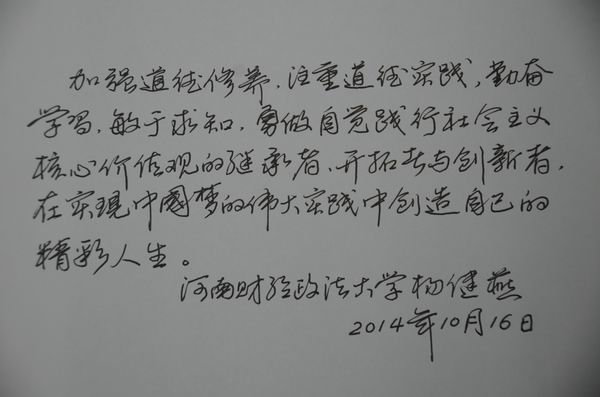 加强道德修养，注重道德实践，勤奋
学习，敏于求知，勇做自觉践行社会主义
核心价值观的继承者、开拓者与创新者，
在实現中國梦的伟大实践中创造自己的
精彩人生。
河南财经政法大学杨健燕
2014年10月16日